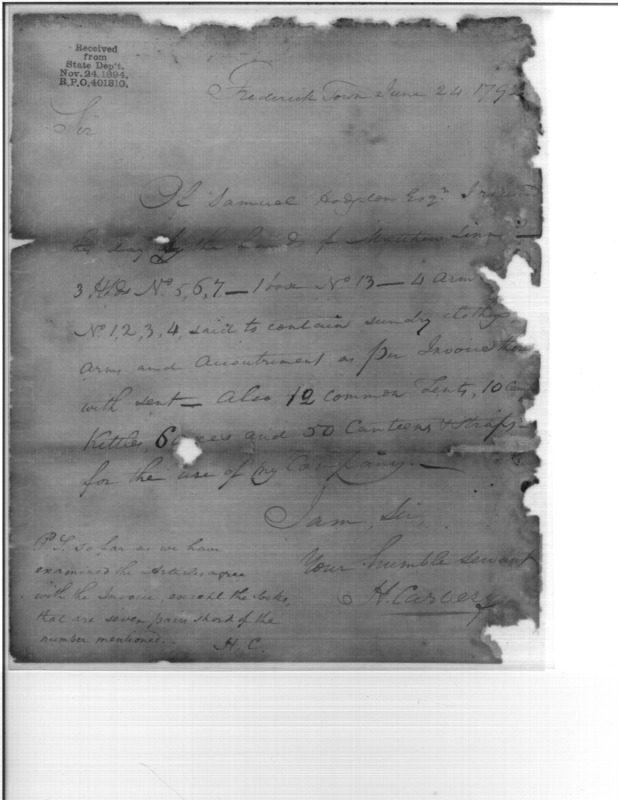 Received
from
State Dep't.
Nov. 24, 1894.
R.P.O. 401810.
Frederick Town June 24 1792
Sir
Of Samuel Hodgdon Esqr. I received
this day by the hands of Matthew
3 Hhds No. 5, 6, 7 — 1 box No 13 — 4 arm
No 1, 2, 3, 4, said to contain sundry clothg
arms and Accoutrement as pr Invoice there
with sent — Also 12 common Tents, 10 Camp
Kettles, 6 and 50 Canteens & straps
for the use of my Company. —
I am, Sir,
Your humble servant
H. Carbery
P.S. so far as we have
examined the Articles, agree
with the Invoice, except the socks,
that are seven pairs short of the
number mentioned. —
H. C.